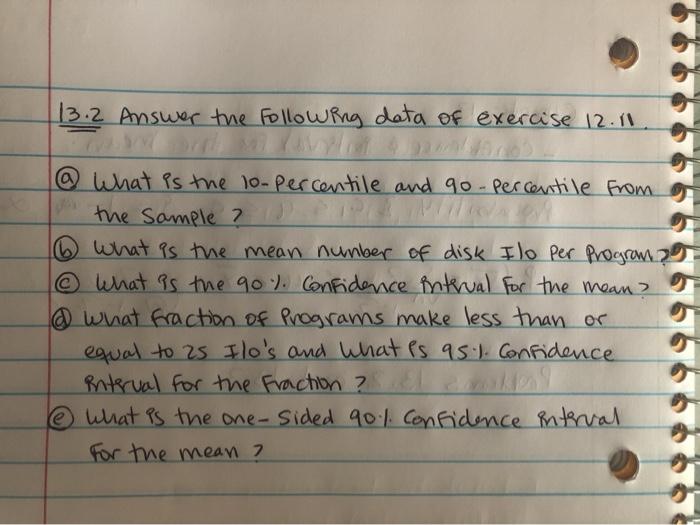 13.2 Answer the Following data of exercise 12.11.
ⓐ What is the 10-percentile and 90-percentile From
the Sample ?
ⓑ What is the mean number of disk I/o Per Program ?
ⓒ What is the 90 %. Confidence interval For the mean ?
ⓓ What Fraction of Programs make less than or
equal to 25 I/o's and what is 95%. Confidence
interval For the Fraction ?
ⓔ What is the one-sided 90%. Confidence interval
For the mean ?